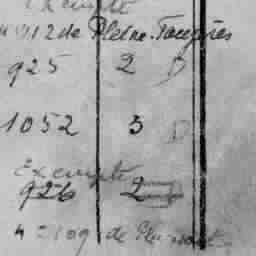 Exempte
n° 912 de Pleine-Fougères
925 2 D
1052 3 D
Exempte
926 2
n° 109 de